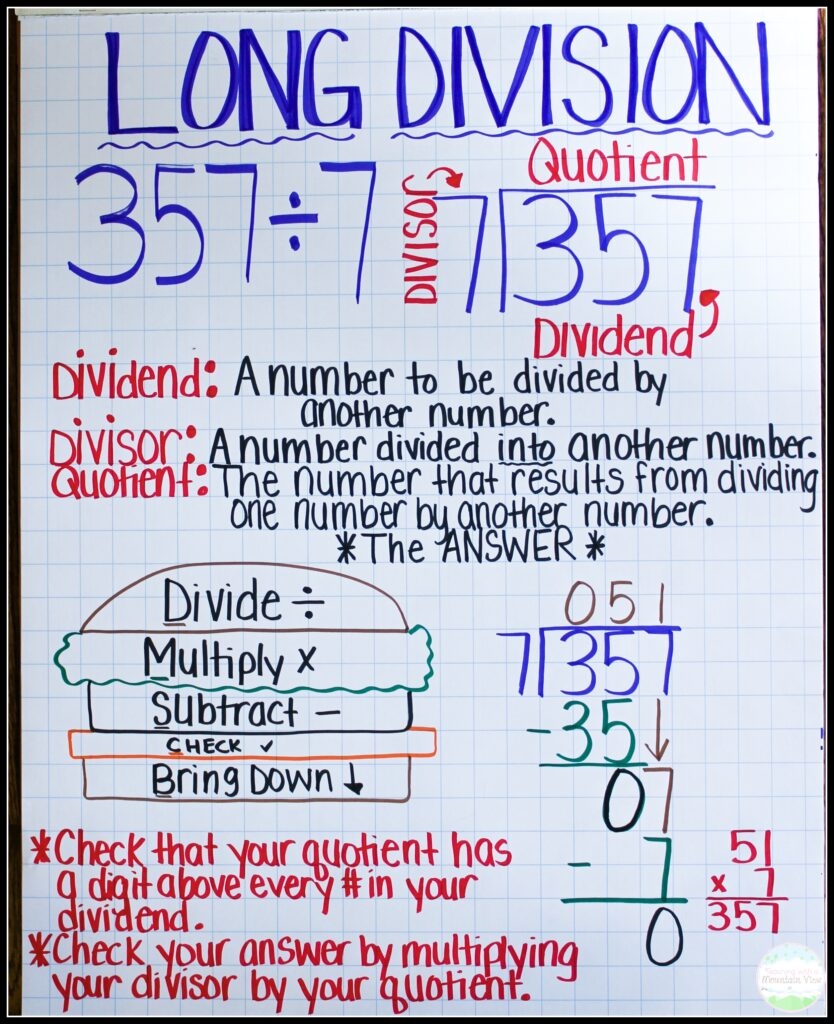 LONG DIVISION
357÷7
DIVISOR
Quotient
7 357
Dividend
Dividend: A number to be divided by
another number.
Divisor: A number divided into another number.
Quotient: The number that results from dividing
one number by another number.
*The ANSWER*
Divide ÷
Multiply x
Subtract –
CHECK ✓
Bring Down ↓
051
7 357
-35↓
07
- 7
0
51
x 7
357
*Check that your quotient has
a digit above every # in your
dividend.
*Check your answer by multiplying
your divisor by your quotient.
Teaching with a
Mountain View